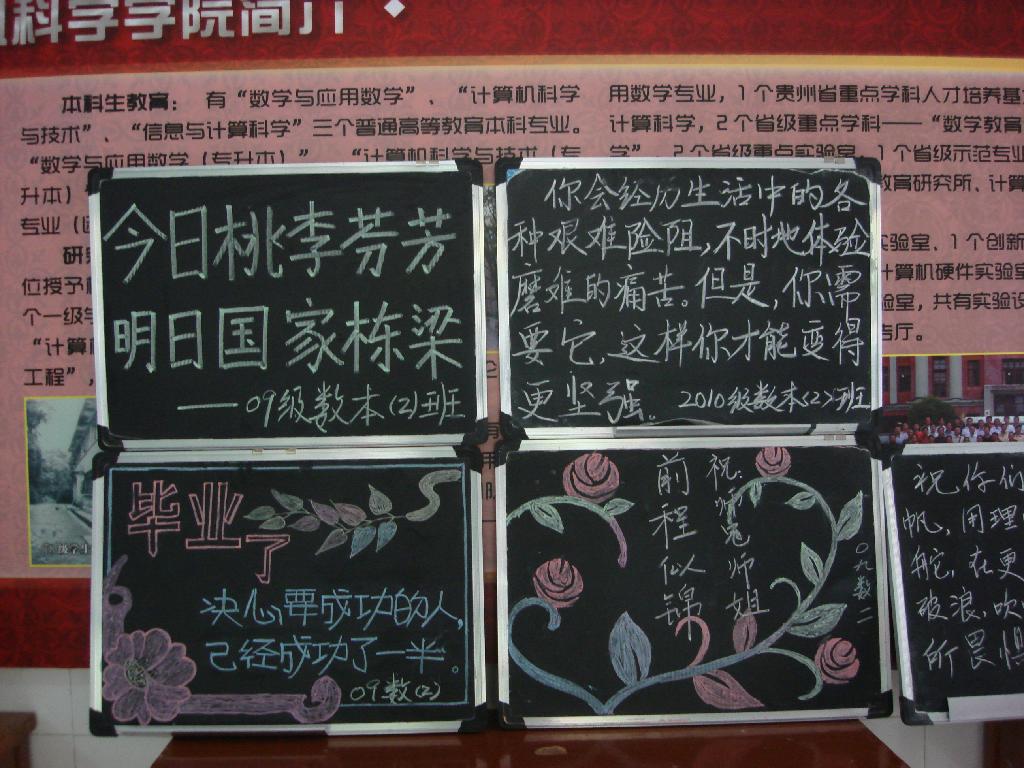 科学学院简介
本科生教育： 有“数学与应用数学”、“计算机科学
与技术”、“信息与计算科学”三个普通高等教育本科专业。
“数学与应用数学（专升本）”、“计算机科学与技术（专
升本）
专业（
研
位授予
个一级学
“计算
工程”，
用数学专业，1个贵州省重点学科人才培养基
计算科学，2个省级重点学科——“数学教育
学”，2个省级重点实验室，1个省级示范专业
教育研究所、计算
实验室、1个创新
计算机硬件实验室
验室，共有实验设
告厅。
今日桃李芬芳
明日国家栋梁
——09级数本(2)班
你会经历生活中的各
种艰难险阻,不时地体验
磨难的痛苦。但是,你需
要它,这样你才能变得
更坚强。 2010级数本<2>班
毕业了
决心要成功的人,
已经成功了一半。
09数(2)
祝:师兄师姐
前程似锦
○九数二
祝你们
帆,用理
舵,在更
破浪,吹
所畏惧